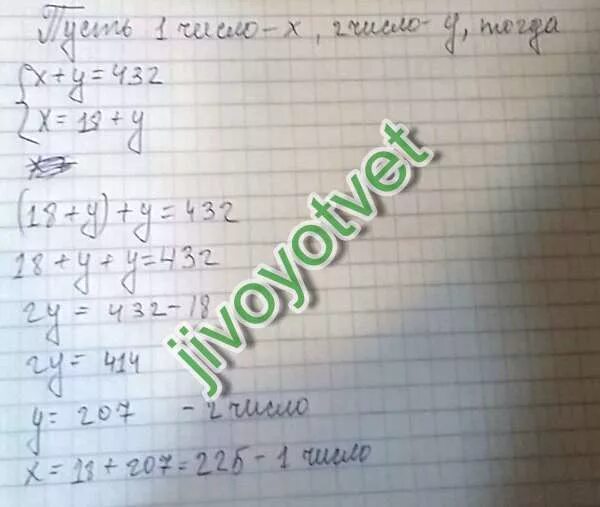 Пусть 1 число - x, 2 число - y, тогда
{x + y = 432
x = 18 + y
(18 + y) + y = 432
18 + y + y = 432
2y = 432 - 18
2y = 414
y = 207 - 2 число
x = 18 + 207 = 225 - 1 число
jivoyotvet